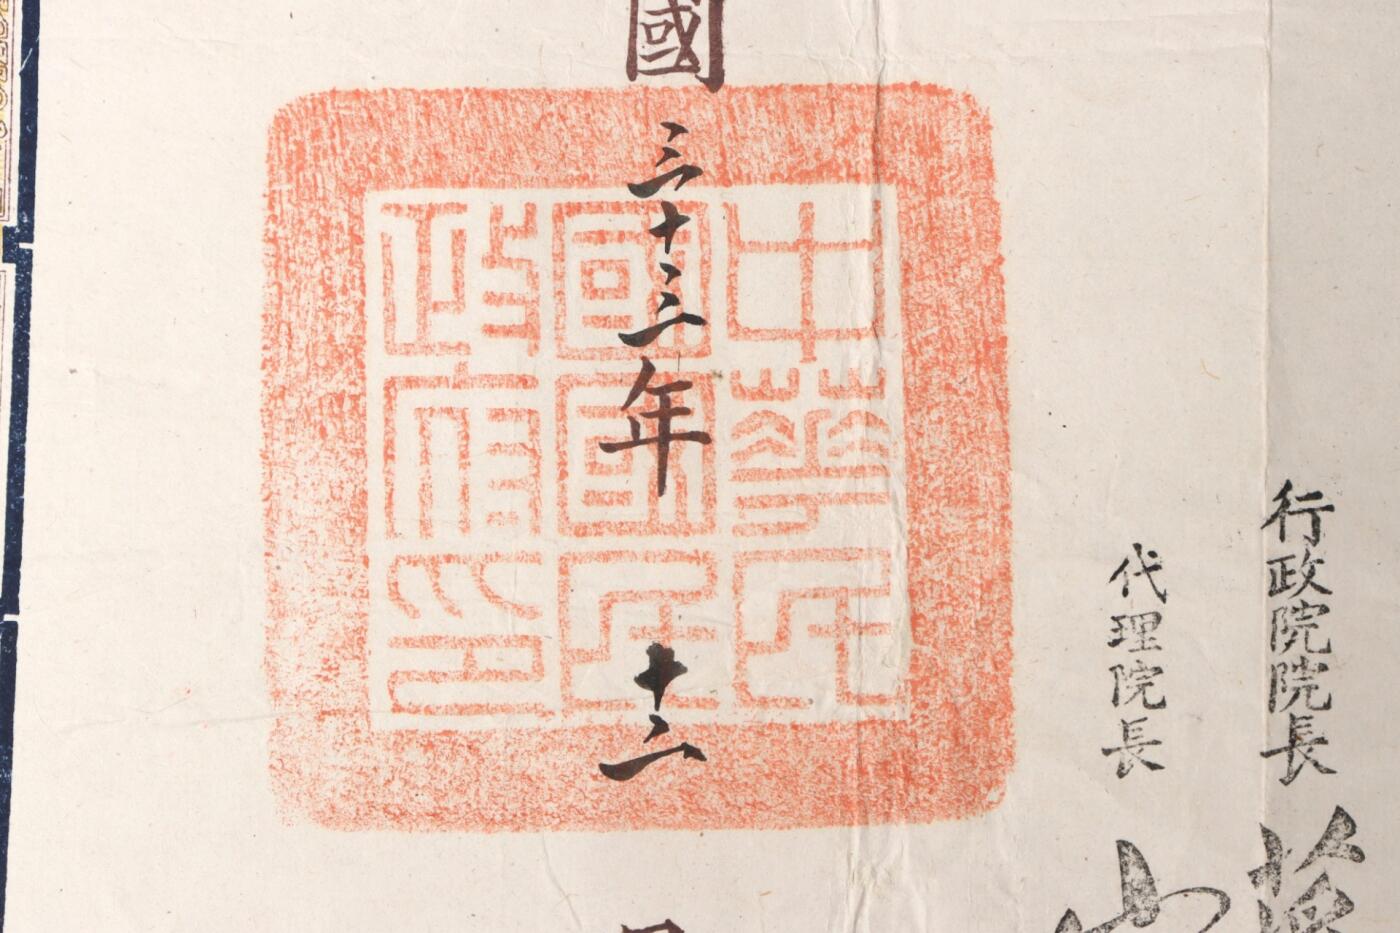 行政院院長
代理院長
國三十三年十二
中華民
國國民
政府印